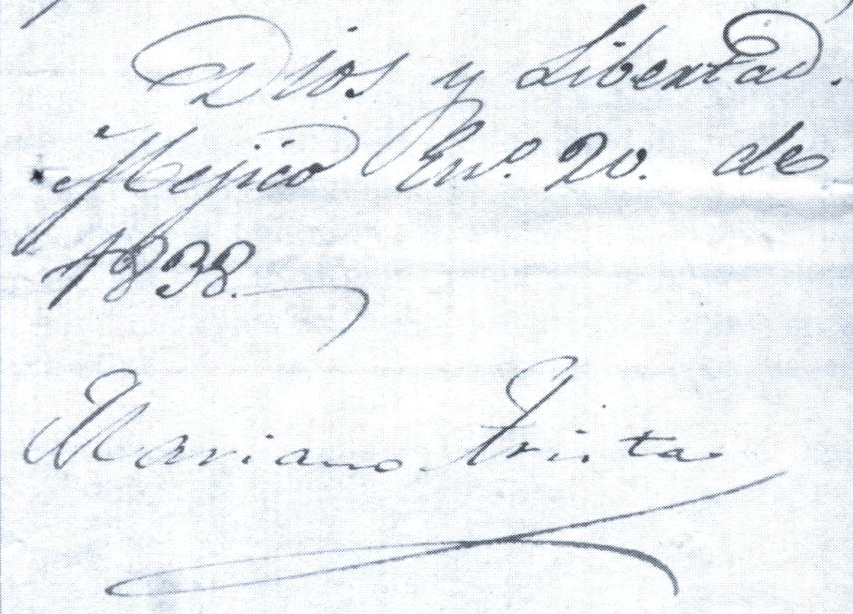 Dios y Libertad.
Mejico En.º 20. de
1838.
Mariano Arista